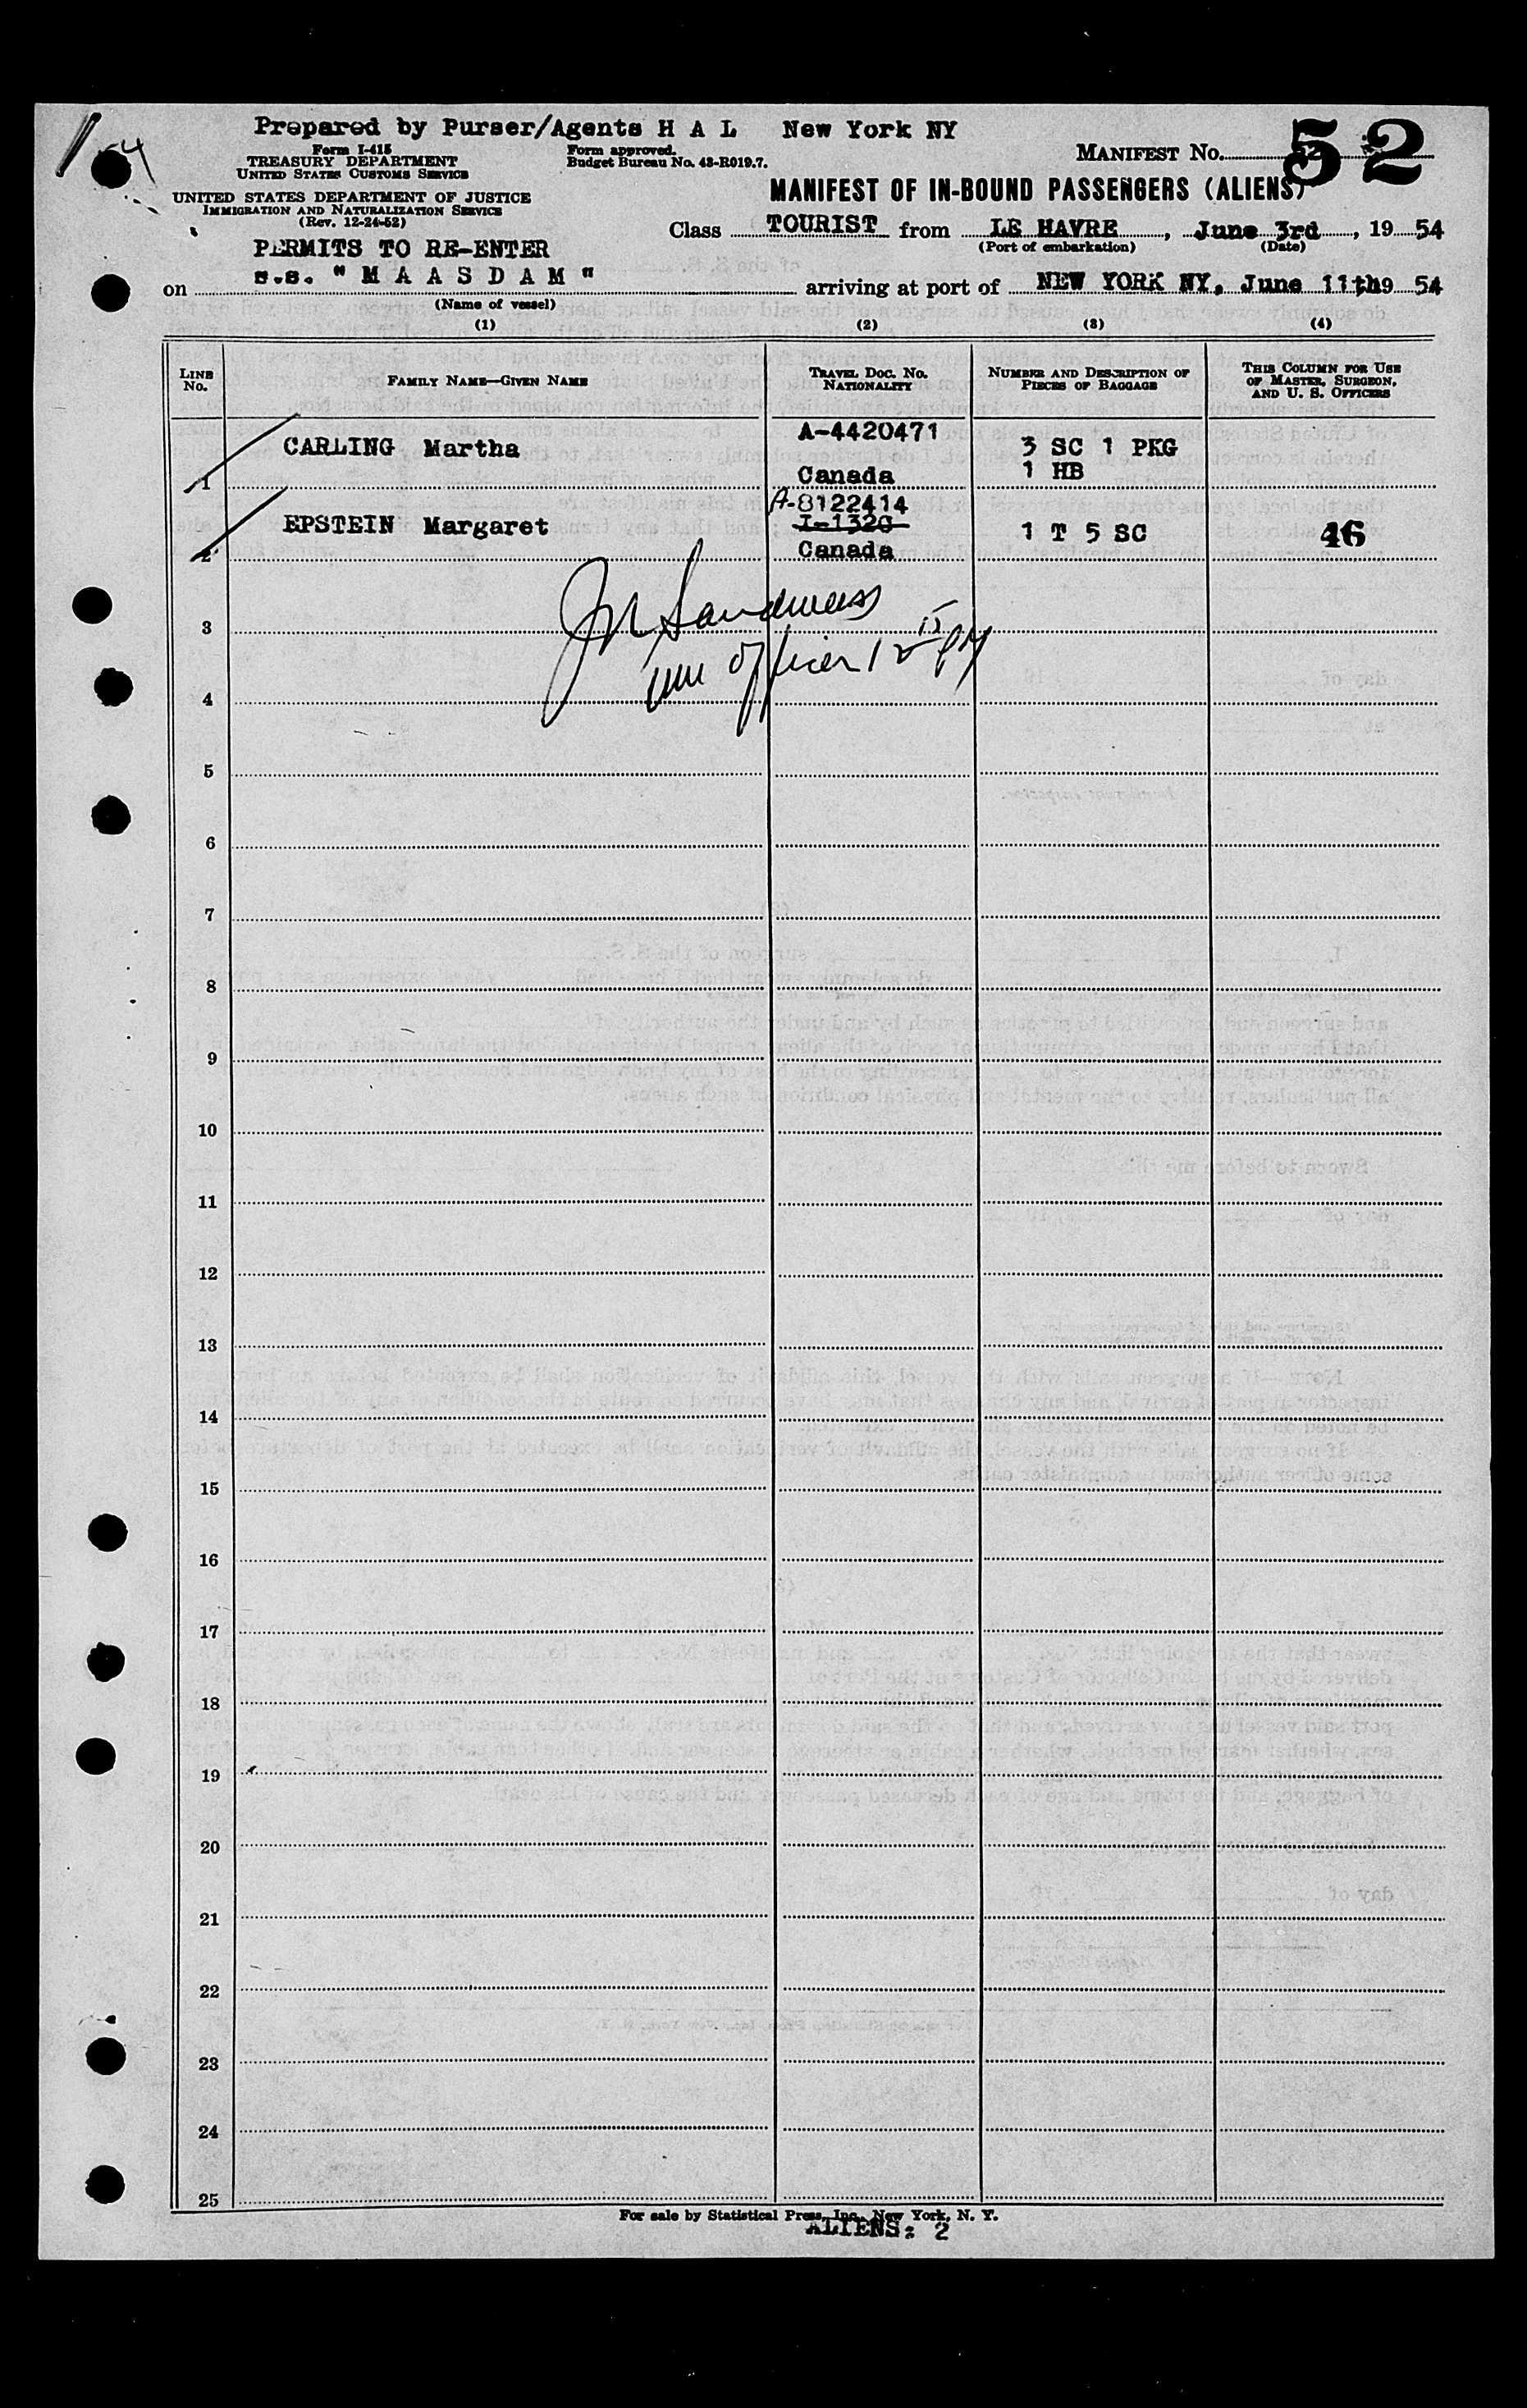 Prepared by Purser/Agents H A L New York NY
Form I-415
TREASURY DEPARTMENT
UNITED STATES CUSTOMS SERVICE
Form approved.
Budget Bureau No. 43-R019.7.
MANIFEST No. 52
52
UNITED STATES DEPARTMENT OF JUSTICE
IMMIGRATION AND NATURALIZATION SERVICE
(Rev. 12-24-52)
MANIFEST OF IN-BOUND PASSENGERS (ALIENS)
Class TOURIST from LE HAVRE, June 3rd, 19 54
(Port of embarkation) (Date)
PERMITS TO RE-ENTER
on s.s. "M A A S D A M" arriving at port of NEW YORK NY, June 11th19 54
(Name of vessel)
(1) (2) (3) (4)
LINE No. FAMILY NAME—GIVEN NAME TRAVEL DOC. No. NATIONALITY NUMBER AND DESCRIPTION OF PIECES OF BAGGAGE THIS COLUMN FOR USE OF MASTER, SURGEON, AND U. S. OFFICERS
A-4420471
CARLING Martha 3 SC 1 PKG
1 Canada 1 HB
A-8122414
EPSTEIN Margaret I-132C 1 T 5 SC 46
2 Canada
3
officer
4
5
6
7
8
9
10
11
12
13
14
15
16
17
18
19
20
21
22
23
24
25
For sale by Statistical Press, Inc., New York, N. Y.
ALIENS: 2